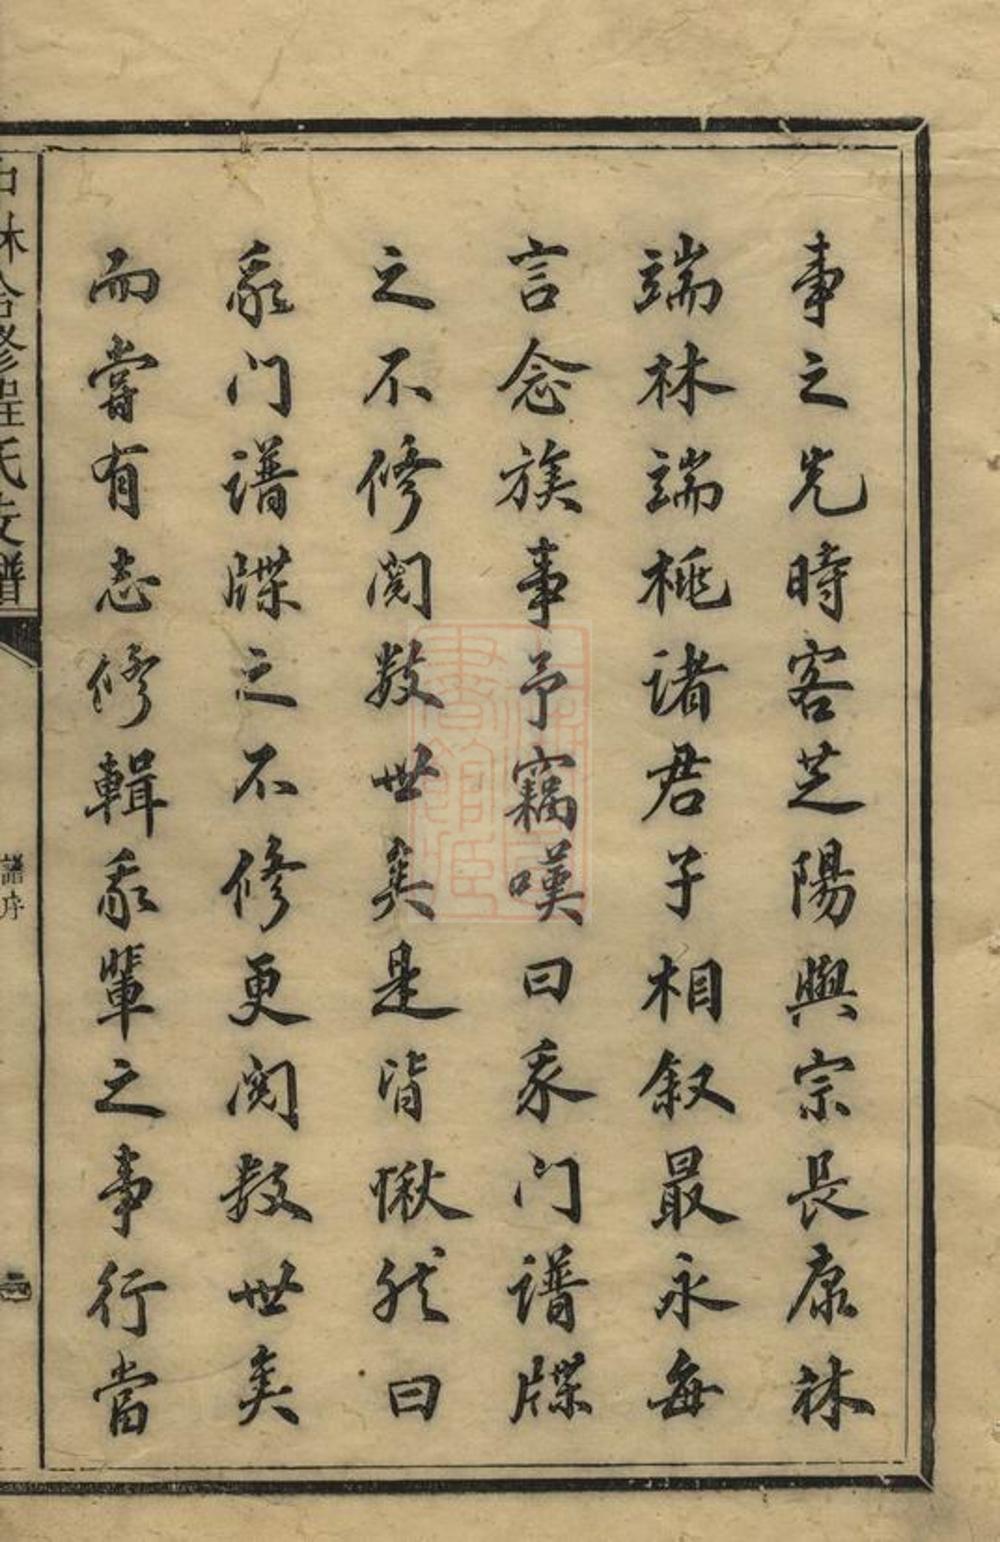 事之先時客芝陽與宗長康林
端林端桃諸君子相叙最永每
言念族事予竊嘆曰予门譜牒
之不修閲數世矣是皆愀然曰
我门譜牒之不修更閲數世矣
而嘗有志修輯我輩之事行當
林合修程氏支譜
譜序
二